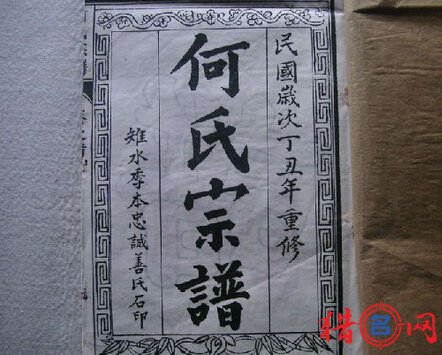 民國歲次丁丑年重修
何氏宗譜
雉水季本忠誠善氏石印
猎名网